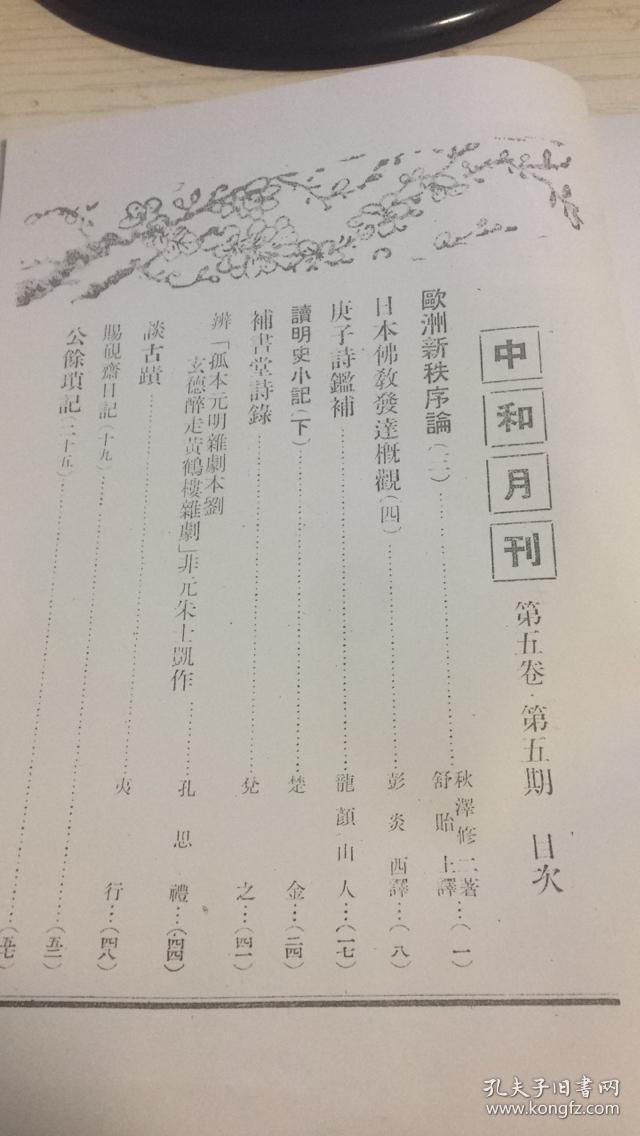 中和月刊
第五卷·第五期 目次
歐洲新秩序論(二)……秋澤修二著 舒貽上譯…(一)
日本佛教發達概觀(四)……彭炎西譯…(八)
庚子詩鑑補……龍顧山人…(一七)
讀明史小記(下)……楚金…(二四)
補書堂詩錄……兌之…(四一)
辨「孤本元明雜劇本劉
玄德醉走黃鶴樓雜劇」非元朱士凱作……孔思禮…(四四)
談古蹟……夾行…(四八)
賜硯齋日記(十九)……(五二)
公餘瑣記(二十五)……(五七)
孔夫子旧書网
www.kongfz.com